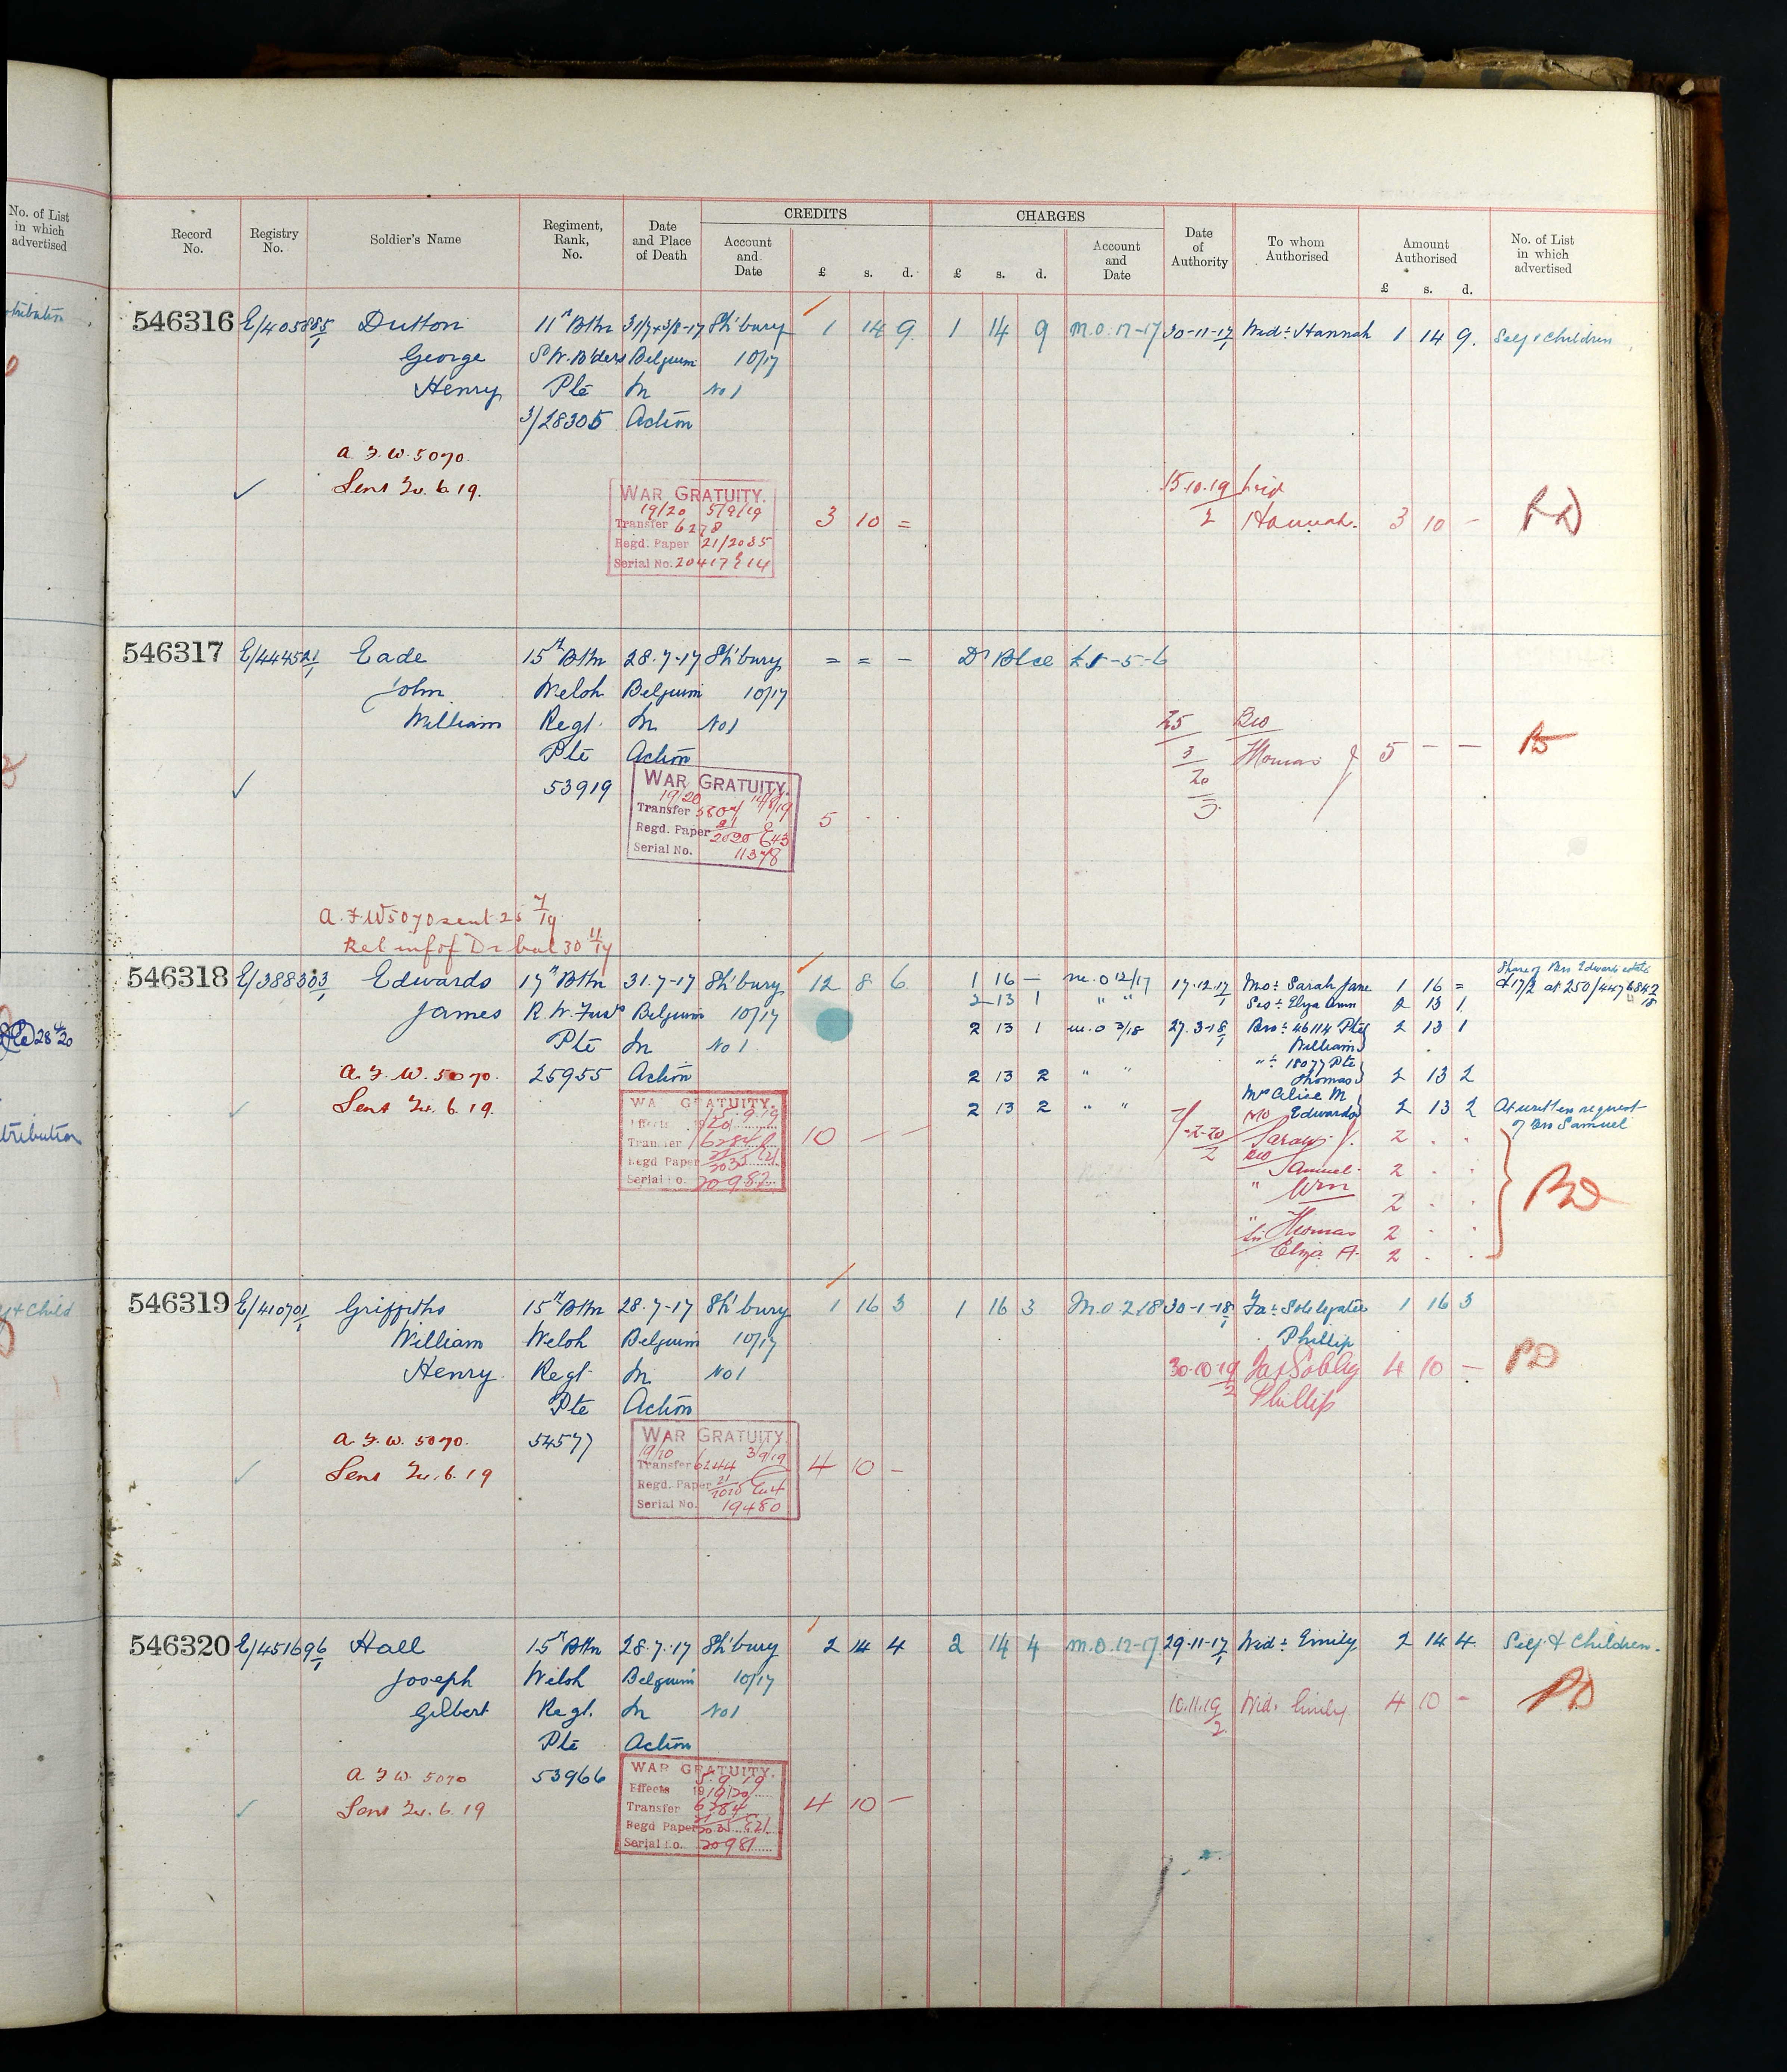 No. of List
in which
advertised
CREDITS
CHARGES
Record
No.
Registry
No.
Soldier's Name
Regiment,
Rank,
No.
Date
and Place
of Death
Account
and
Date
£ s. d.
£ s. d.
Account
and
Date
Date
of
Authority
To whom
Authorised
Amount
Authorised
£ s. d.
No. of List
in which
advertised
546316 E/405885/1 Dutton 11th Bttn 31/7+3/8-17 Sh'bury 1 14 9. 1 14 9 M.O. 12-17 30-11-17/1 Wid: Hannah 1 14 9. Self & Children
George S.W. B'ders Belgium 10/17
Henry Pte In No 1
3/28305 Action
A. F. W. 5070.
Sent 24. 6. 19.
WAR GRATUITY.
19/20 5/9/19
Transfer 6278
Regd. Paper 21/2035
Serial No. 20417
3 10 =
15.10.19/2 Wid
Hannah. 3 10 -
546317 E/444521/1 Eade 15th Bttn 28.7-17 Sh'bury = = - Dr Blce £1-5-6
John Welsh Belgium 10/17
William Regt. In No 1
Pte Action
53919
25/3/20/3 Bro
Thomas J 5 - -
WAR GRATUITY.
19/20 14/8/19
Transfer
Regd. Paper
Serial No. 11378
5 . .
A. F. W 5070 sent 25/7/19
546318 E/388303/1 Edwards 17th Bttn 31.7-17 Sh'bury 12 8 6 1 16 - M.O 12/17 17.12.17/1 Mo: Sarah Jane 1 16 =
2 13 1 " " Sis: Elza Ann 2 13 1
Share of Bro Edwards estate
James R.W. Fus Belgium 10/17 2 13 1 M.O 3/18 27.3-18/1 Bro: 46114 Pte 2 13 1
William
Pte In No 1 ": 18077 Pte
A. F. W. 5070. 25955 Action 2 13 2 " " Thomas 2 13 2
Mrs Alice M
Sent 24. 6. 19. 2 13 2 " " Edwards 2 13 2 At written request
of Bro Samuel
WAR GRATUITY.
5.9.19
Effects
Transfer
Regd Paper
Serial No. 20982
10 - -
Mo
Sarah J. 2 . .
Bro
Samuel. 2 . .
" Wm 2 . .
" Thomas 2 . .
Sis Elza A. 2 . .
546319 E/410701/1 Griffiths 15th Bttn 28.7-17 Sh'bury 1 16 3 1 16 3 M.O. 2.18 30-1-18/1 Fa: Sole legatee 1 16 3
William Welsh Belgium 10/17 Phillip
Henry Regt. In No 1 30.10.19/2 Fa & Sol Leg 4 10 -
Pte Action Phillip
A. F. W. 5070. 54577
Sent 24. 6. 19
WAR GRATUITY.
19/20 3/9/19
Transfer 6244
Regd. Paper
Serial No. 19480
4 10 -
546320 E/451696/1 Hall 15th Bttn 28.7.17 Sh'bury 2 14 4 2 14 4 M.O. 12-17 29.11-17/1 Wid: Emily 2 14 4 Self & Children.
Joseph Welsh Belgium 10/17
Gilbert Regt. In No 1 10.11.19/2 Wid. Emily 4 10 -
Pte Action
A F W. 5070 53966
Sent 24. 6. 19
WAR GRATUITY.
5.9.19
Effects 1919/20
Transfer 6284
Regd Paper
Serial No. 20981
4 10 -